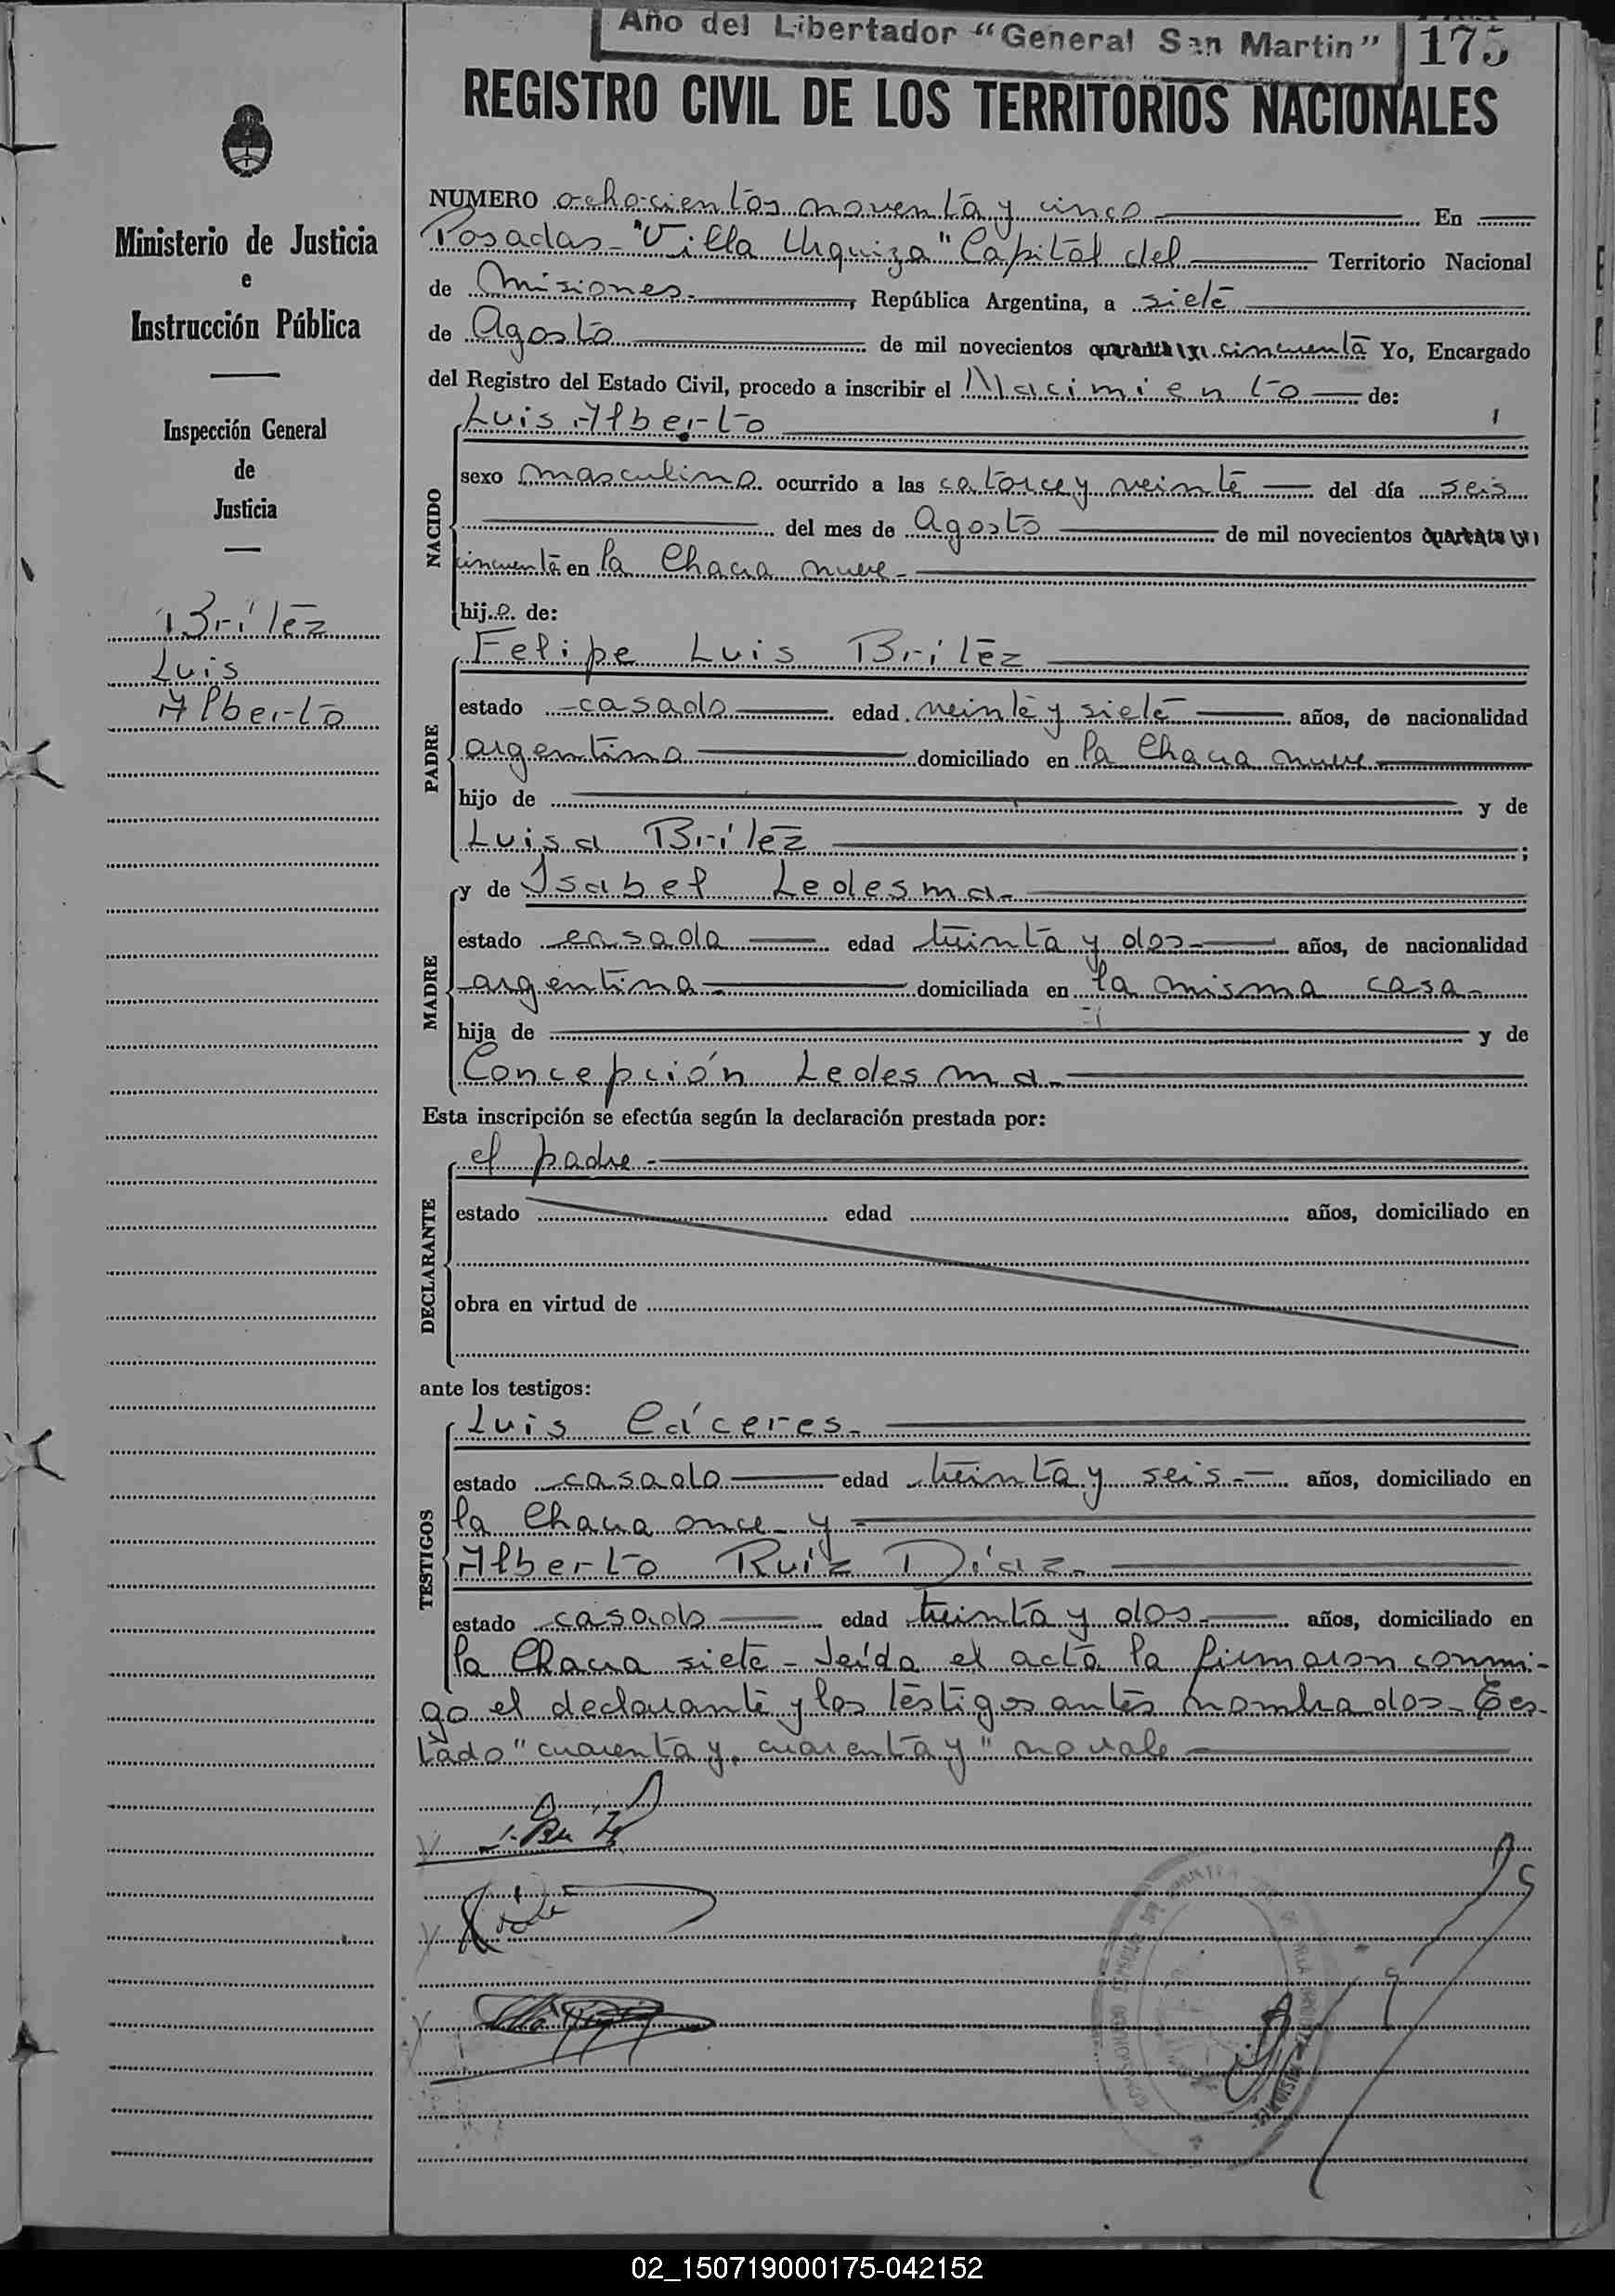 Año del Libertador "General San Martin"
175
REGISTRO CIVIL DE LOS TERRITORIOS NACIONALES
Ministerio de Justicia
e
Instrucción Pública
Inspección General
de
Justicia
Britez
Luis
Alberto
NUMERO ochocientos noventa y cinco En
Posadas - "Villa Urquiza" Capital del Territorio Nacional
de Misiones.- , República Argentina, a siete
de Agosto de mil novecientos cuarenta y cincuenta Yo, Encargado
del Registro del Estado Civil, procedo a inscribir el Nacimiento de:
Luis Alberto
NACIDO
sexo masculino ocurrido a las catorce y veinte del día seis
del mes de Agosto de mil novecientos cuarenta y
cincuenta en la Chacra nueve -
hijo de:
Felipe Luis Britez
PADRE
estado casado edad veinte y siete años, de nacionalidad
argentina domiciliado en la Chacra nueve
hijo de y de
Luisa Britez ;
MADRE
y de Isabel Ledesma -
estado casada edad treinta y dos - años, de nacionalidad
argentina - domiciliada en la misma casa -
hija de y de
Concepción Ledesma -
Esta inscripción se efectúa según la declaración prestada por:
el padre -
DECLARANTE
estado edad años, domiciliado en
obra en virtud de
ante los testigos:
Luis Cáceres -
TESTIGOS
estado casado edad treinta y seis - años, domiciliado en
la Chacra once - y -
Alberto Ruíz Díaz -
estado casado edad treinta y dos - años, domiciliado en
la Chacra siete - Leída el acta la firmaron conmi-
go el declarante y los testigos antes nombrados - Tes-
tado "cuarenta y, cuarenta y" no vale
02_150719000175-042152